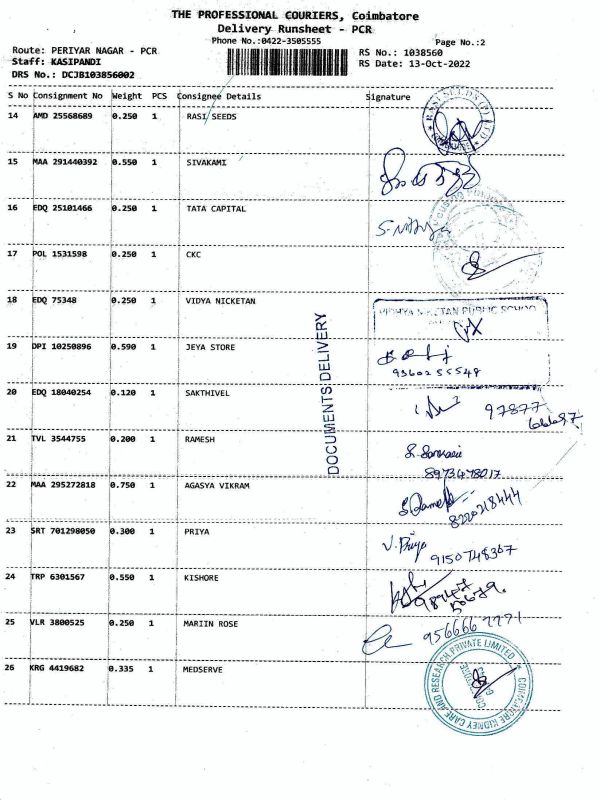 THE PROFESSIONAL COURIERS, Coimbatore
Delivery Runsheet - PCR
Phone No.:0422-3505555
Page No.:2
Route: PERIYAR NAGAR - PCR
RS No.: 1038560
Staff: KASIPANDI
RS Date: 13-Oct-2022
DRS No.: DCJB103856002
S No Consignment No Weight PCS Consignee Details Signature
14 AMD 25568689 0.250 1 RASI SEEDS
RASI SEEDS (P) LTD
15 MAA 291440392 0.550 1 SIVAKAMI
16 EDQ 25101466 0.250 1 TATA CAPITAL
17 POL 1531598 0.250 1 CKC
18 EDQ 75348 0.250 1 VIDYA NICKETAN
VIDHYA NIKETAN PUBLIC SCHOOL
19 DPI 10250896 0.590 1 JEYA STORE
9360255548
20 EDQ 18040254 0.120 1 SAKTHIVEL
97877
66687
21 TVL 3544755 0.200 1 RAMESH
8973478017
22 MAA 295272818 0.750 1 AGASYA VIKRAM
8220218444
23 SRT 701298050 0.300 1 PRIYA V. Priya
9150748367
24 TRP 6301567 0.550 1 KISHORE
25 VLR 3800525 0.250 1 MARIIN ROSE
26 KRG 4419682 0.335 1 MEDSERVE
COIMBATORE KIDNEY CARE AND RESEARCH PRIVATE LIMITED
DOCUMENTS DELIVERY